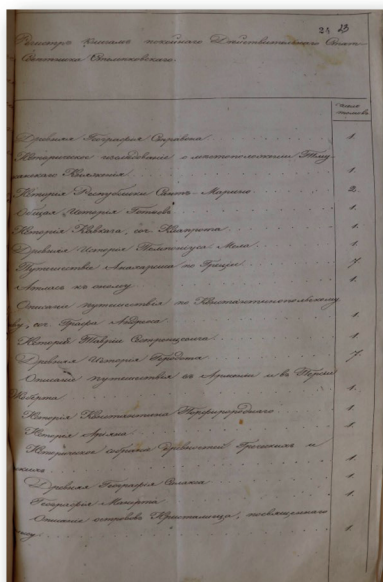 24 23
Регистръ Книгамъ покойнаго Действительнаго Статс
Советника Стемпковскаго.
Число
томовъ.
Древняя Географія Страбона 1.
Историческое изследование о местоположении Тму
тараканскаго Княженія 1.
Исторія Республики Санкт Марино 2.
Общая Исторія 1.
Исторія Кавказа, соч. Клапрота 1.
Древняя Исторія Помпоніуса Мела 1.
Путешествіе Анахарсиса по Греціи 7.
Атласъ къ оному 1.
Описаніе путешествія по Константинопольскому
ву, соч. Графа Андреоси 1.
Исторія Тавріи Сестренцевича 1.
Древняя Исторія Геродота 7.
Описаніе путешествія въ Арменіи и въ Персіи
Жоберта 1.
Исторія Константина Порфиророднаго 1.
Исторія Аріана 1.
Историческое собраніе древностей Греческихъ и
1.
Древняя Географія Скилакса 1.
Географія 1.
Описаніе острововъ посвященнаго
1.